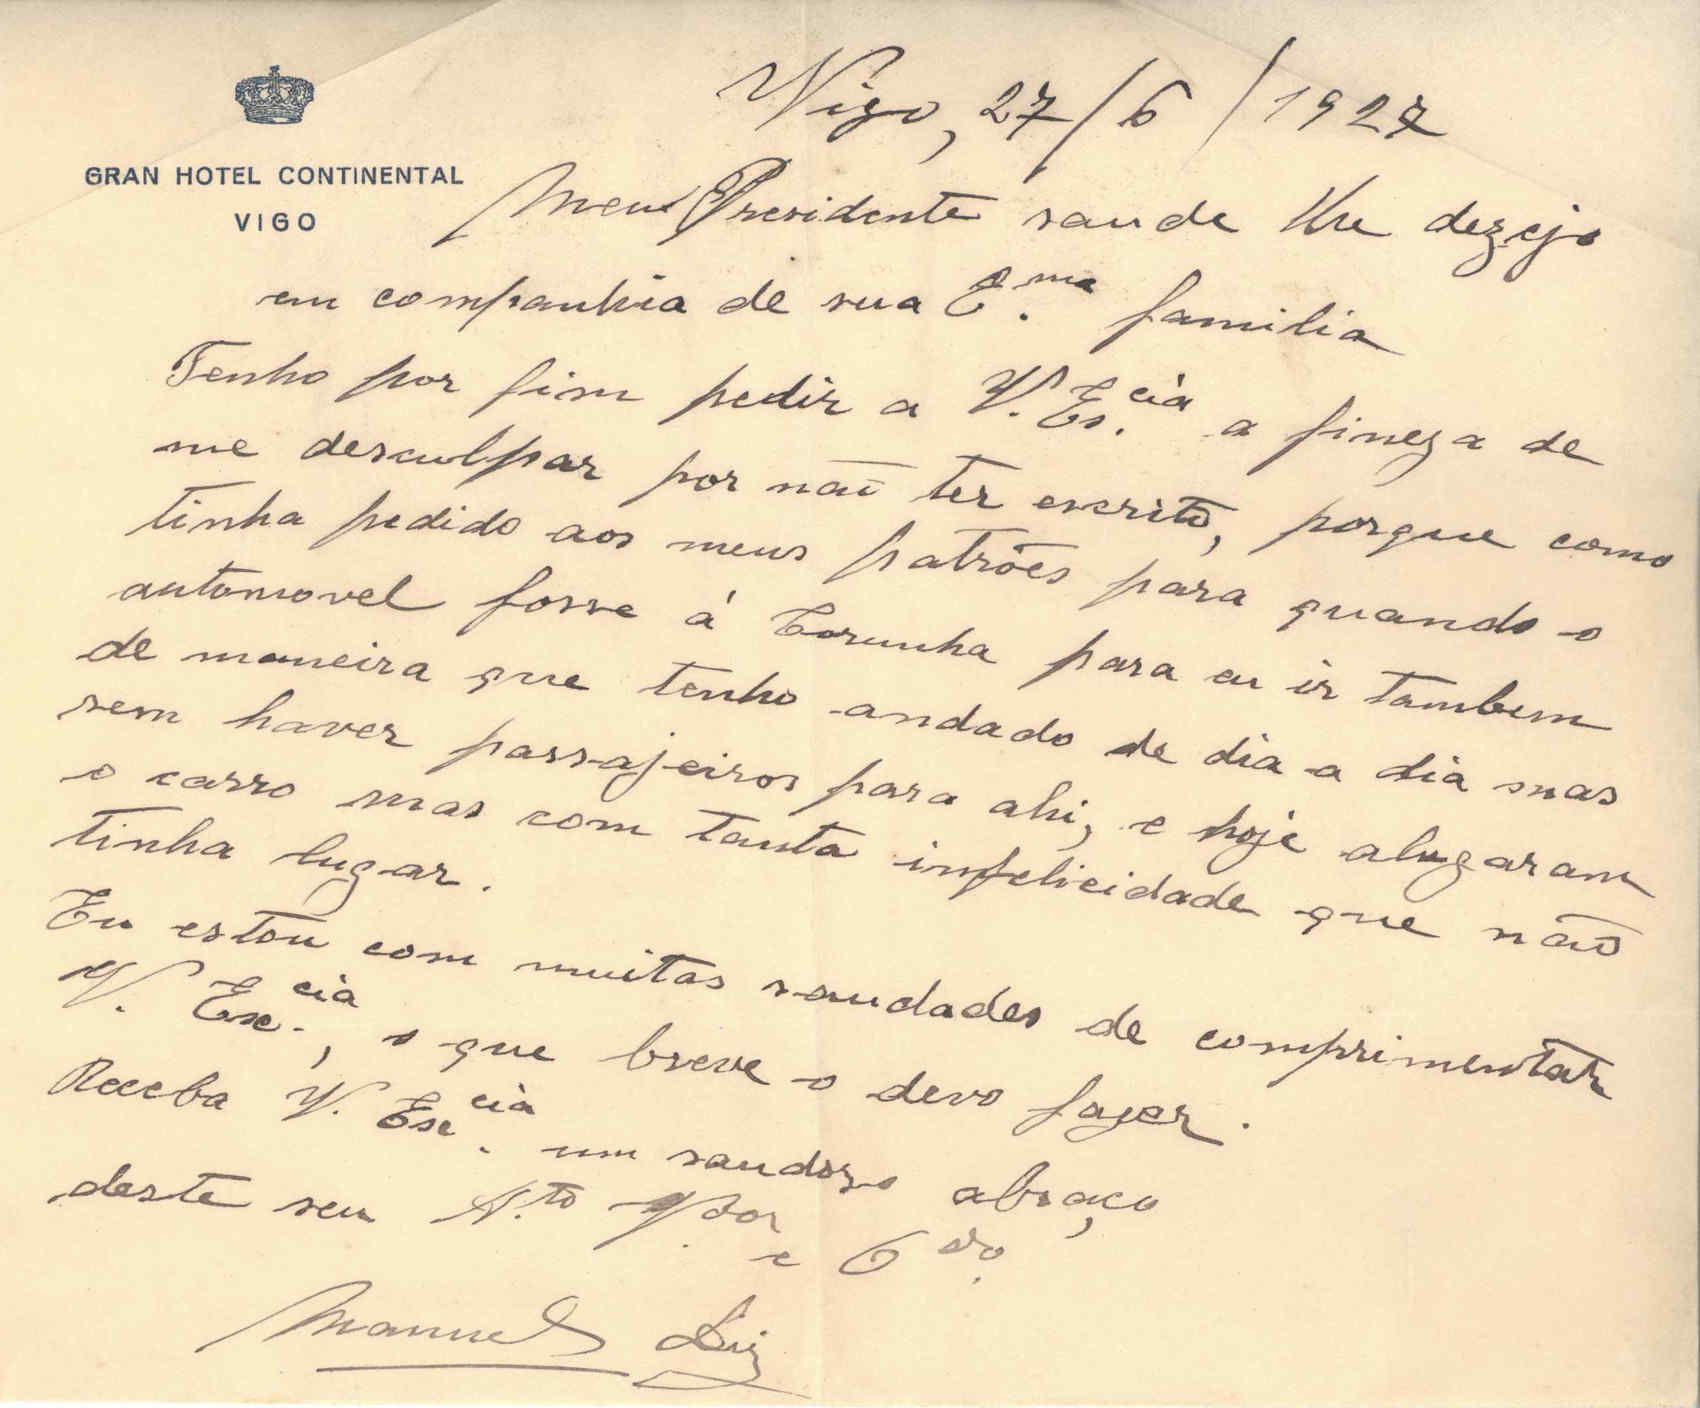 GRAN HOTEL CONTINENTAL
VIGO
Vigo, 27/6/1927
Meu Presidente saude lhe dezejo
em companhia de sua E.ma familia
Tenho por fim pedir a V. Es.cia a fineza de
me desculpar por não ter escrito, porque como
tinha pedido aos meus patrões para quando o
automovel fosse á Corunha para eu ir tambem
de maneira que tenho andado de dia a dia mas
sem haver passajeiros para ahi, e hoje alugaram
o carro mas com tanta infelicidade que não
tinha lugar.
Eu estou com muitas saudades de comprimentar
V. Exc.cia, o que breve o devo fazer.
Receba V. Exc.cia um saudozo abraço
deste seu At.to V.dor
e C.do
Manuel Luiz